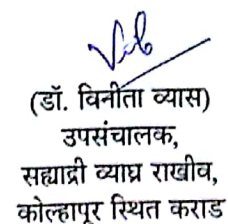 (डॉ. विनीता व्यास)
उपसंचालक,
सह्याद्री व्याघ्र राखीव,
कोल्हापूर स्थित कराड